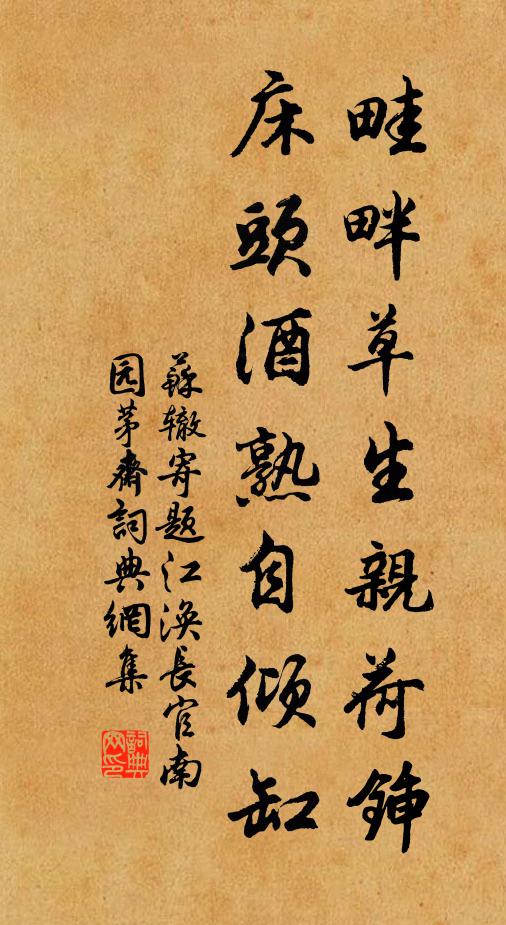 畦畔草生親荷鍤
床頭酒熟自傾缸
蘇辙寄题江渙長官南
园茅齋詞典網集
詞典
網印